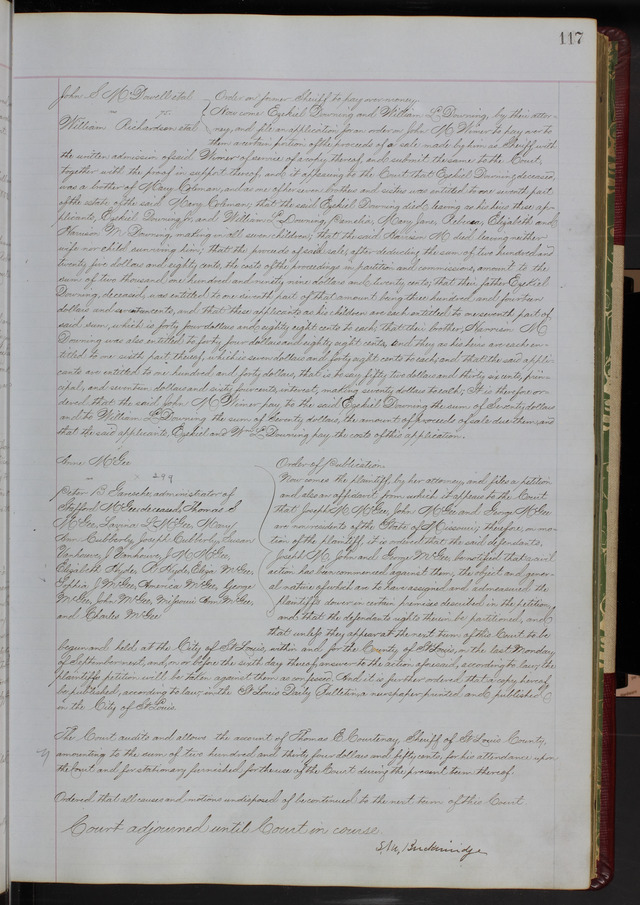 117
John S McDowell et al
vs
William Richardson et al
Order on former Sheriff to pay over money
Now come Ezekiel Downing and William L Downing, by their attor-
ney, and file an application for an order on John M Wimer to pay over to
them a certain portion of the proceeds of a sale made by him as Sheriff with
the written admission of said Wimer of service of a copy thereof, and submit the same to the Court,
together with the proof in support thereof, and it appearing to the Court that Ezekiel Downing deceased,
was a brother of Mary Colman, and as one of her seven brothers and sisters was entitled to one seventh part
of the estate of the said Mary Colman; that the said Ezekiel Downing died, leaving as his heirs these ap-
plicants, Ezekiel Downing Jr, and William L Downing, Permelia, Mary Jane, Rebecca, Elizabeth and
Harrison M. Downing making in all seven children; that the said Harrison M died leaving neither
wife nor child surviving him; that the proceeds of said sale, after deducting the sum of two hundred and
twenty five dollars and eighty cents, the costs of the proceedings in partition and commissions, amount to the
sum of two thousand one hundred and ninety nine dollars and twenty cents; that their father Ezekiel
Downing, deceased, was entitled to one seventh part of that amount being three hundred and fourteen
dollars and seventeen cents, and that these applicants as his children are each entitled to one seventh part of
said sum, which is forty four dollars and eighty eight cents to each; that their brother, Harrison M
Downing was also entitled to forty four dollars and eighty eight cents, and they as his heirs are each en-
titled to one sixth part thereof, which is seven dollars and forty eight cents to each; and that the said appli-
cants are entitled to one hundred and forty dollars, that is to say fifty two dollars and thirty six cents, prin-
cipal, and seventeen dollars and sixty four cents, interest, making seventy dollars to each; It is therefore or-
dered that the said John M Wimer pay, to the said Ezekiel Downing the sum of Seventy dollars
and to William L Downing the sum of Seventy dollars, the amount of proceeds of sale due them; and
that the said applicants, Ezekiel and Wm L Downing pay the costs of this application.
Anne McGee
vs 299
Peter B Garesche, administrator of
Stafford McGee deceased, Thomas S
McGee, Lavina L McGee, Mary
Ann Cubberly, Joseph Cubberly, Susan
Vanhower, J Vanhower, J M McGee,
Elizabeth Hyder, P Hyde, Eliza McGee,
Sophia J McGee, America McGee, George
McGee, John McGee, Missouri Ann McGee,
and Charles McGee
Order of Publication
Now comes the plaintiff, by her attorney, and files a petition
and also an affidavit from which it appears to the Court
that Joseph M McGee, John McGee and George McGee
are non residents of the State of Missouri; therefore, on mo-
tion of the plaintiff, it is ordered that the said defendants,
Joseph M, John and George McGee be notified that a civil
action has been commenced against them, the object and gener-
al nature of which are to have assigned and admeasured the
plaintiffs dower in certain premises described in the petition,
and that the defendants rights therein be partitioned, and
that unless they appear at the next term of this Court to be
begun and held at the City of St Louis, within and for the County of St Louis, on the last Monday
of September next, and, on or before the sixth day thereof answer to the action aforesaid, according to law, the
plaintiffs petition will be taken against them as confessed. And it is further ordered that a copy hereof
be published, according to law, in the St Louis Daily Bulletin, a newspaper printed and published
in the City of St Louis.
The Court audits and allows the account of Thomas E. Courtenay, Sheriff of St Louis County,
amounting to the sum of two hundred and thirty four dollars and fifty cents, for his attendance upon
the Court and for stationary furnished for the use of the Court during the present term thereof.
Ordered that all causes and motions undisposed of be continued to the next term of this Court.
Court adjourned until Court in course.
S. M. Breckinridge